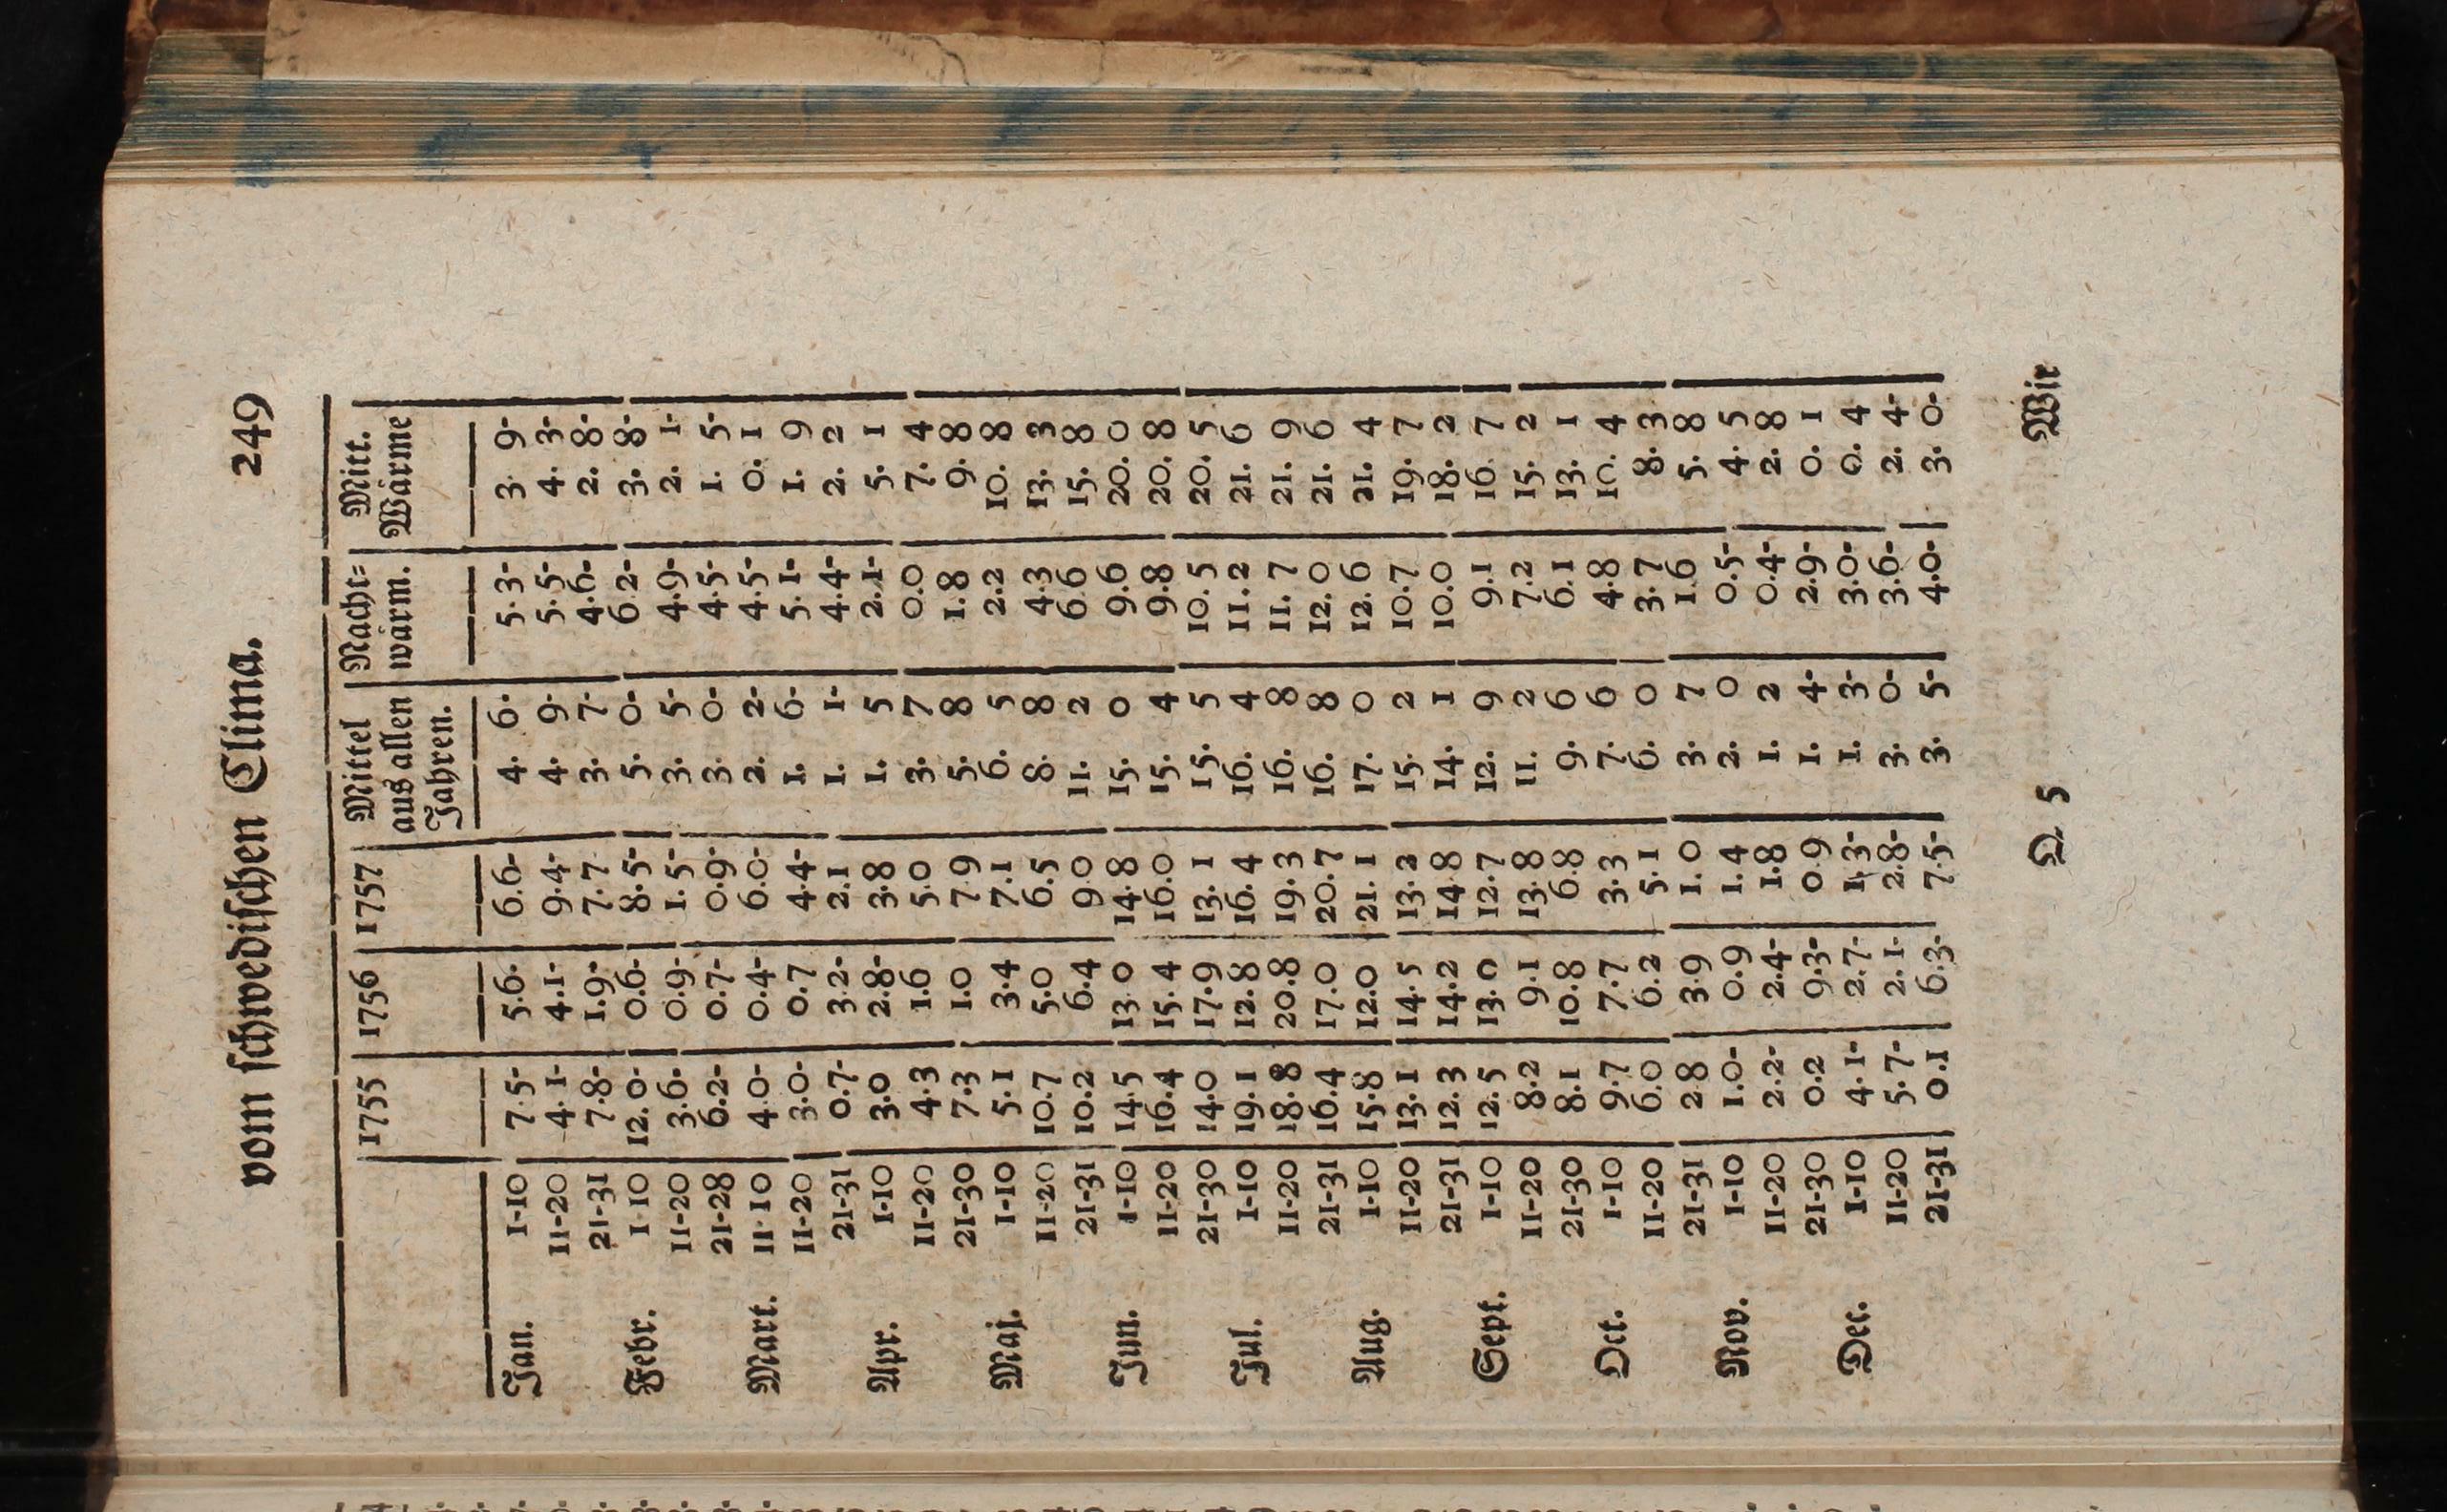 vom schwedischen Clima. 249
1755 | 1756 | 1757 | Mittel aus allen Jahren. | Nacht= wärm. | Mitt. Wärme
Jan. 1-10 7.5- 5.6- 6.6- 4. 6- 5.3- 3. 9-
11-20 4.1- 4.1- 9.4- 4. 9- 5.5- 4. 3-
21-31 7.8- 1.9- 7.7 3. 7- 4.6- 2. 8-
Febr. 1-10 12.0- 0.6- 8.5- 5. 0- 6 2- 3. 8-
11-20 3.6- 0.9- 1.5- 3. 5- 4.9- 2. 1-
21-28 6.2- 0.7- 0.9- 3. 0- 4.5- 1. 5-
Mart. 11-10 4.0- 0.4- 6.0- 2. 2- 4.5- 0. 1
11-20 3.0- 0.7 4.4- 1. 6- 5.1- 1. 9
21-31 0.7- 3.2- 2.1 1. 1- 4.4- 2. 2
Apr. 1-10 3.0 2.8- 3.8 1. 5 2.1- 5. 1
11-20 4.3 1.6 5.0 3. 7 0.0 7. 4
21-30 7.3 1.0 7.9 5. 8 1.8 9. 8
Maj. 1-10 5.1 3.4 7.1 6. 5 2.2 10. 8
11-20 10.7 5.0 6.5 8. 8 4.3 13. 3
21-31 10.2 6.4 9 0 11. 2 6 6 15. 8
Jun. 1-10 14.5 13 0 14.8 15. 0 9.6 20. 0
11-20 16.4 15.4 16.0 15. 4 9.8 20. 8
21-30 14.0 17.9 13.1 15. 5 10.5 20. 5
Jul. 1-10 19.1 12.8 16.4 16. 4 11.2 21. 6
11-20 18.8 20.8 19.3 16. 8 11.7 21. 9
21-31 16.4 17.0 20.7 16. 8 12.0 21. 6
Aug. 1-10 15.8 12.0 21.1 17. 0 12.6 21. 4
11-20 13.1 14.5 13.2 15. 2 10.7 19. 7
21-31 12.3 14.2 14 8 14. 1 10.0 18. 2
Sept. 1-10 12.5 13.0 12.7 12. 9 9.1 16. 7
11-20 8.2 9.1 13.8 11. 2 7.2 15. 2
21-30 8.1 10.8 6.8 9. 6 6.1 13. 1
Oct. 1-10 9.7 7.7 3.3 7. 6 4.8 10. 4
11-20 6.0 6.2 5.1 6. 0 3.7 8. 3
21-31 2 8 3.9 1.0 3. 7 1.6 5. 8
Nov. 1-10 1.0- 0.9 1.4 2. 0 0.5- 4. 5
11-20 2.2- 2.4- 1.8 1. 2 0.4- 2. 8
21-30 0.2 9.3- 0 9 1. 4- 2.9- 0. 1
Dec. 1-10 4.1- 2.7- 1.3- 1. 3- 3.0- 0. 4
11-20 5.7- 2.1- 2.8- 3. 0- 3.6- 2. 4-
21-31 0.1 6.3- 7.5- 3. 5- 4.0- 3. 0-
Q 5 Wir